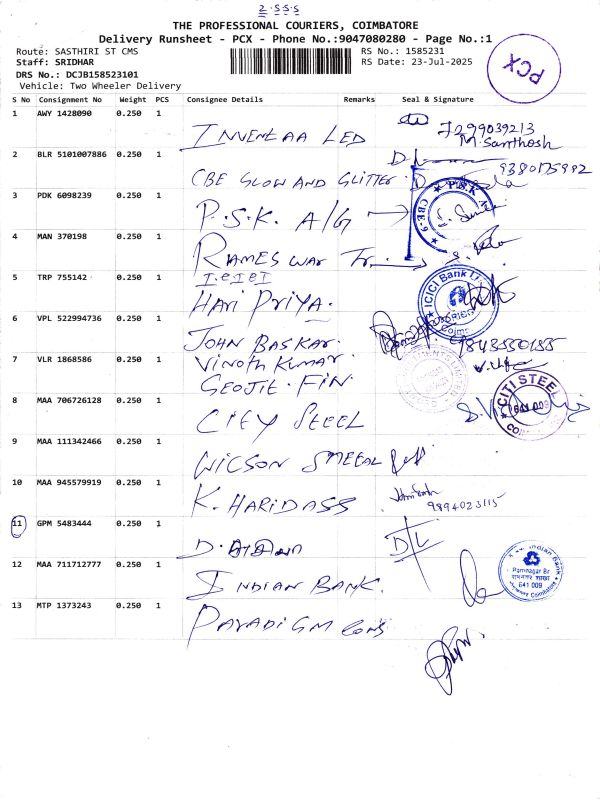 2.S.S.S
THE PROFESSIONAL COURIERS, COIMBATORE
Delivery Runsheet - PCX - Phone No.:9047080280 - Page No.:1
Route: SASTHIRI ST CMS
RS No.: 1585231
Staff: SRIDHAR
RS Date: 23-Jul-2025
DRS No.: DCJB158523101
Vehicle: Two Wheeler Delivery
PCX
S No Consignment No Weight PCS Consignee Details Remarks Seal & Signature
1 AWY 1428090 0.250 1
INVENTAA LED 7299039213
M. Santhosh
2 BLR 5101007886 0.250 1
CBE GLOW AND GLITTER 9380175992
3 PDK 6098239 0.250 1
P.S.K. A/G
P.S.K
CBE-6
4 MAN 370198 0.250 1
RAMESWAR Tr.
5 TRP 755142 0.250 1
I.C.I.C.I
HARI PRIYA.
ICICI Bank
6 VPL 522994736 0.250 1
JOHN BASKAR. 9843550155
7 VLR 1868586 0.250 1
VINOTH KUMAR.
GEOJIT. FIN.
8 MAA 706726128 0.250 1
CITY STEEL
CITI STEEL
641 009
9 MAA 111342466 0.250 1
WICSON
10 MAA 945579919 0.250 1
K. HARIDASS
9894023115
11 GPM 5483444 0.250 1
12 MAA 711712777 0.250 1
INDIAN BANK.
Indian Bank
Ramnagar Br
रामनगर शाखा
641 009
13 MTP 1373243 0.250 1
PARADIGM Cons